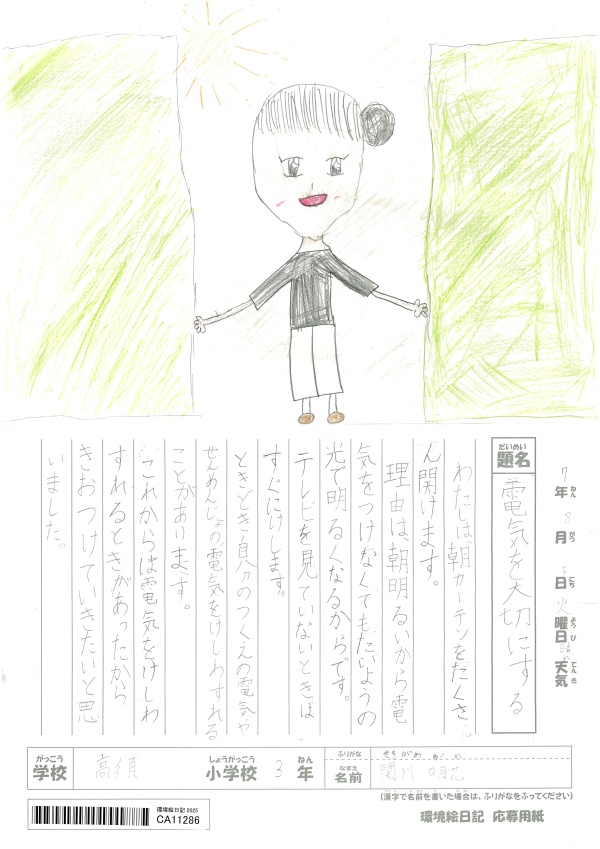 7年ねん 8月がつ 5日にち 火曜日ようび 晴れ天気てんき
だいめい
題名
電気を大切にする
わたしは、朝カーテンをたくさ
ん開けます。
理由は、朝明るいから電
気をつけなくてもたいようの
光で明るくなるからです。
テレビを見ていないときは
すぐにけします。
ときどき自分のつくえの電気や
せんめんじょの電気をけしわすれる
ことがあります。
これからは電気をけしわ
すれるときがあったから
きおつけていきたいと思
いました。
がっこう
学校
高須
しょうがっこう
小学校
3
ねん
年
ふりがな
なまえ
名前
せきがわ
関川
花
(漢字で名前を書いた場合は、ふりがなをふってください)
環境絵日記 2025
CA11286
環境絵日記 応募用紙